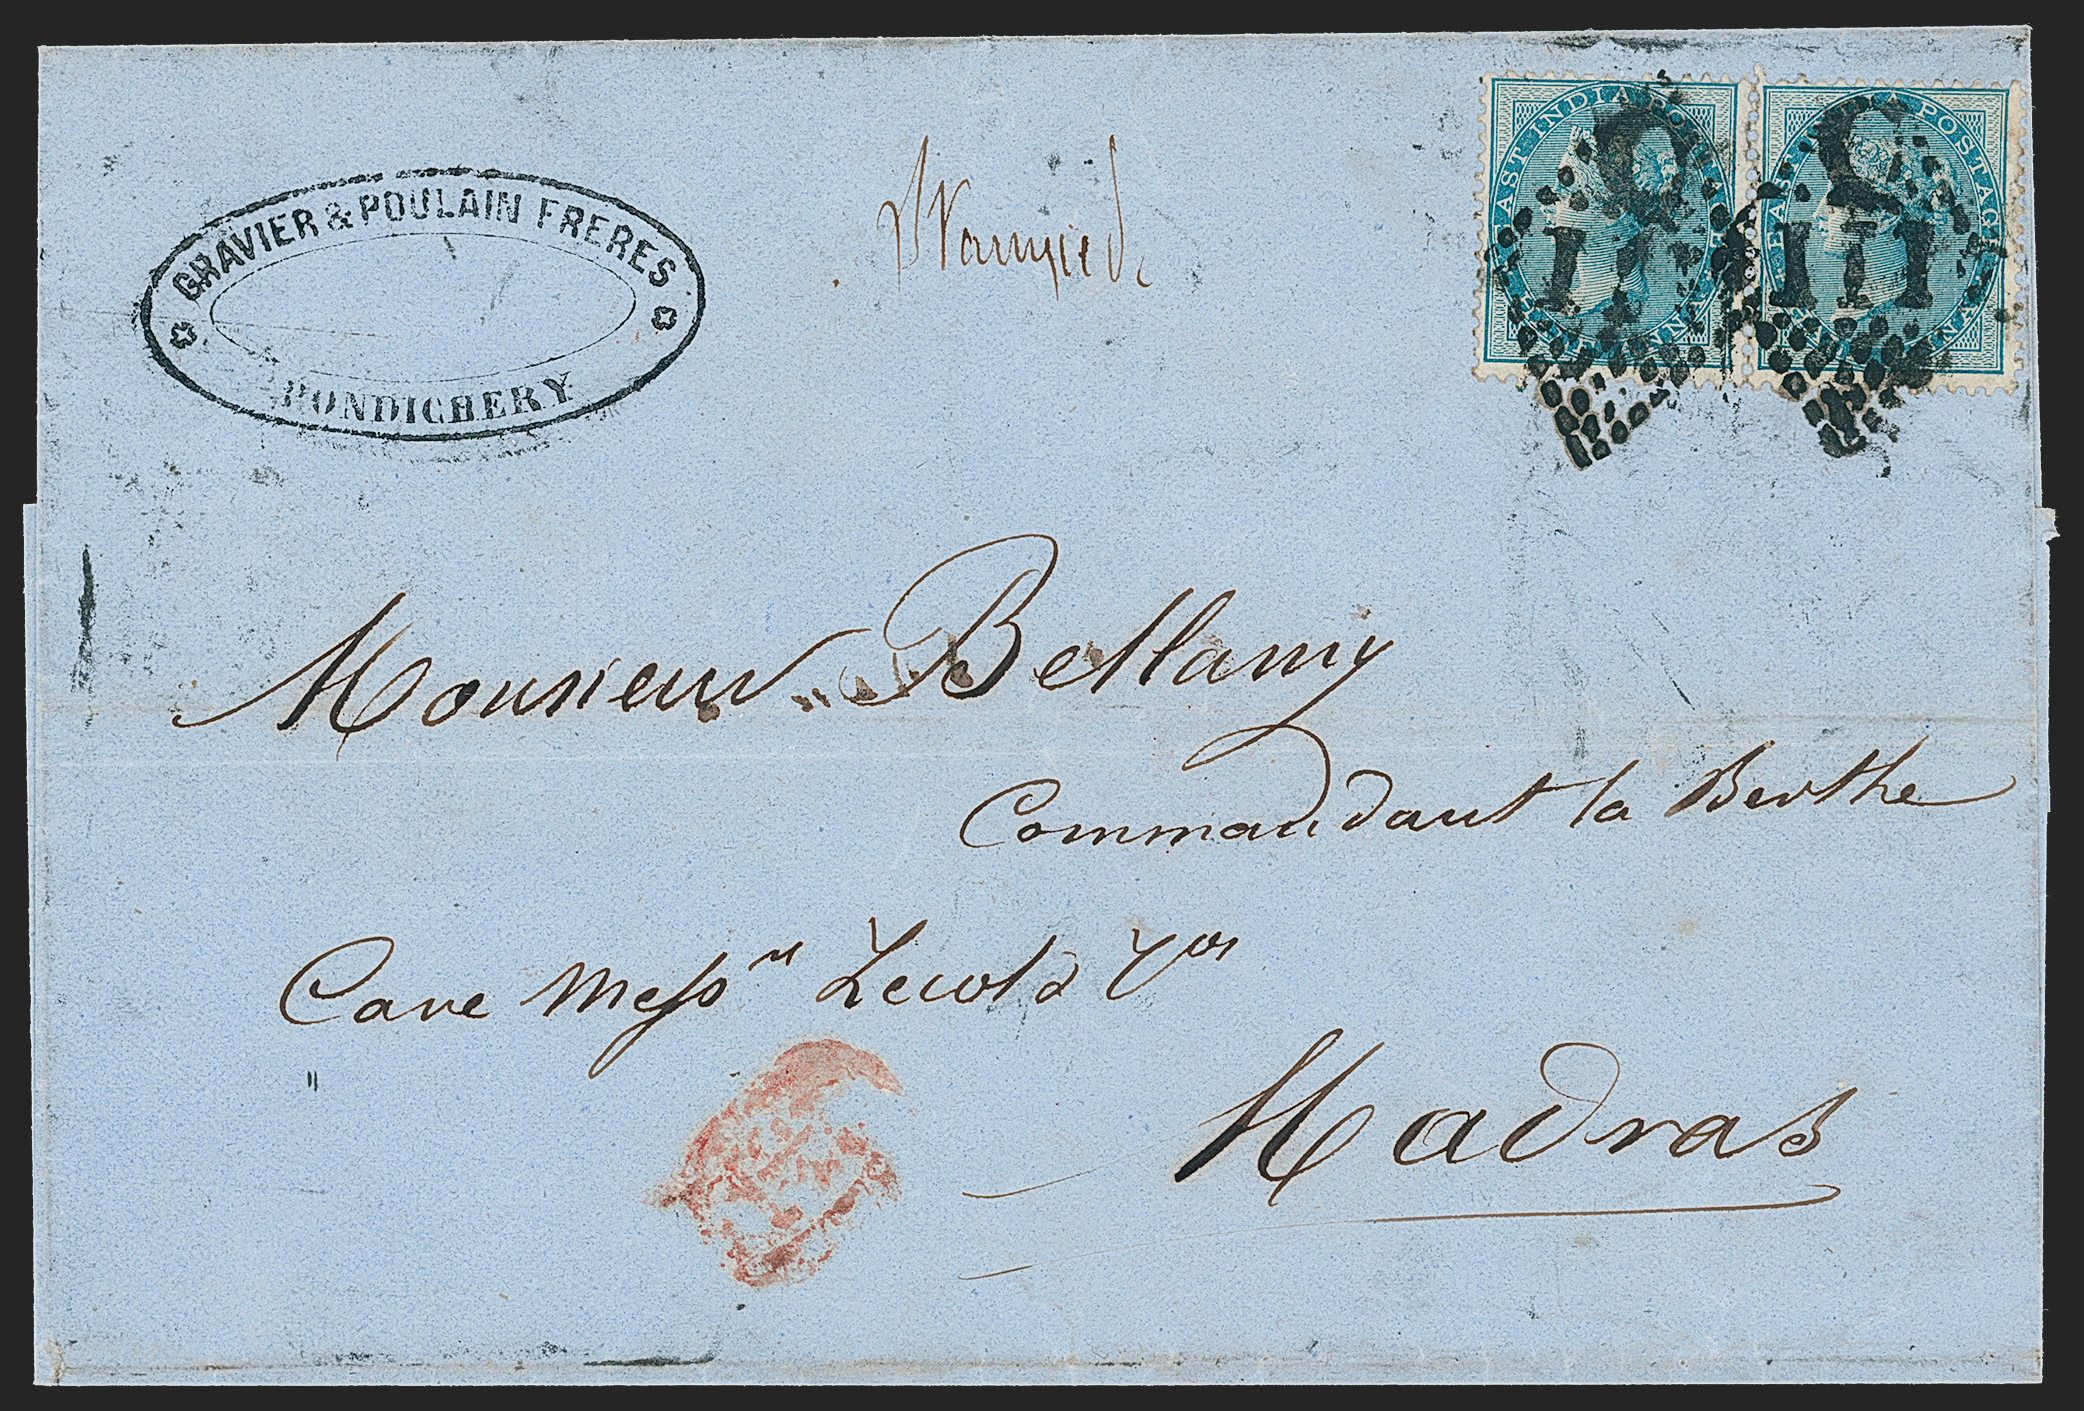 GRAVIER & POULAIN FRERES
PONDICHERY
Stamped
EAST INDIA POSTAGE
EAST INDIA POSTAGE
Monsieur Bellamy
Commandant la Berthe
Care Messrs
Madras